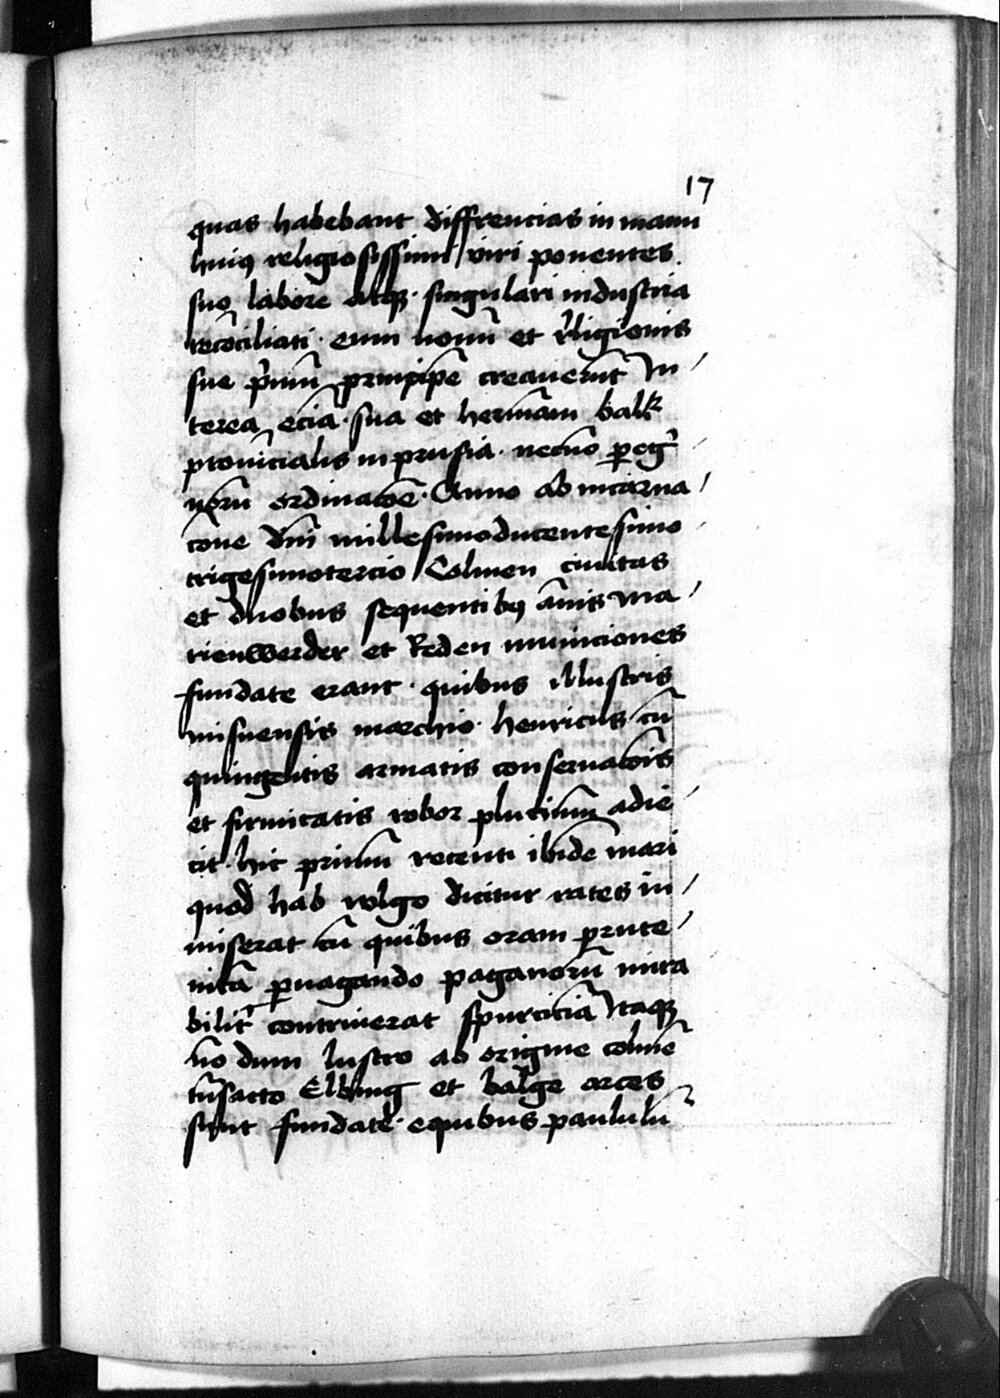 17
quas habebant diffrencias in manu
huiꝰ religiosissimi viri ponentes.
suo labore atqꝫ · singulari industria
recōciliati · eum nouū et rͥligionis
sue pͥmū principē creauerūt In /
terea eciā · sua et hermān balk
prouīcialis in prusia · necno ꝑegͥ /
norū ordinacōe · Anno ab incarna /
cōne dn̄i millesimoducentesimo
trigesimotercio Colmen ciuitas
et duobus sequentibꝰ ānis Ma /
rienwerder et Reden municiones
fundate erant · quibus illustris
misnensis marchio · henricus cū
quingentis armatis conseruacōis
et firmitatis robor plurimū adie /
cit · hic primū recenti ibidē mari
quod hab volgo dicitur rates in /
miserat cū quibus oram prute /
nicā ꝑuagando paganorū mira
bilitͥ contriuerat spurciciā Itaqꝫ
v̄o dum lustro ab origine colmē
trͣnsacto Elbing et balge arces
sunt fundate · equibus paululū